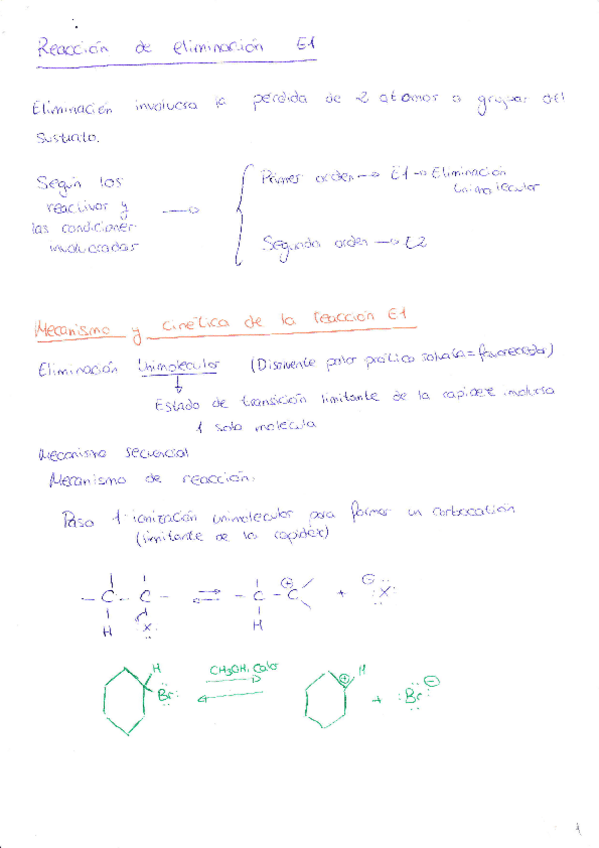 Reacción de eliminación E1
Eliminación involucra la perdida de 2 atomos o grupos del
sustrato.
Según los
reactivos y
las condiciones
involucradas
Primer orden → E1 → Eliminación
Unimolecular
Segundo orden → E2
Mecanismo y cinética de la reacción E1
Eliminación Unimolecular (Disolvente polar prótico = favorecedor)
Estado de transición limitante de la rapidez involucra
1 sola molecula
Mecanismo secuencial
Mecanismo de reacción.
Paso 1- ionización unimolecular para formar un carbocatión
(limitante de la rapidez)
- C - C - ⇌ - C - C⊕ + ⊖ :X:
H X: H
H Br: CH3OH, Calor ⊕ H + :Br: ⊖
1